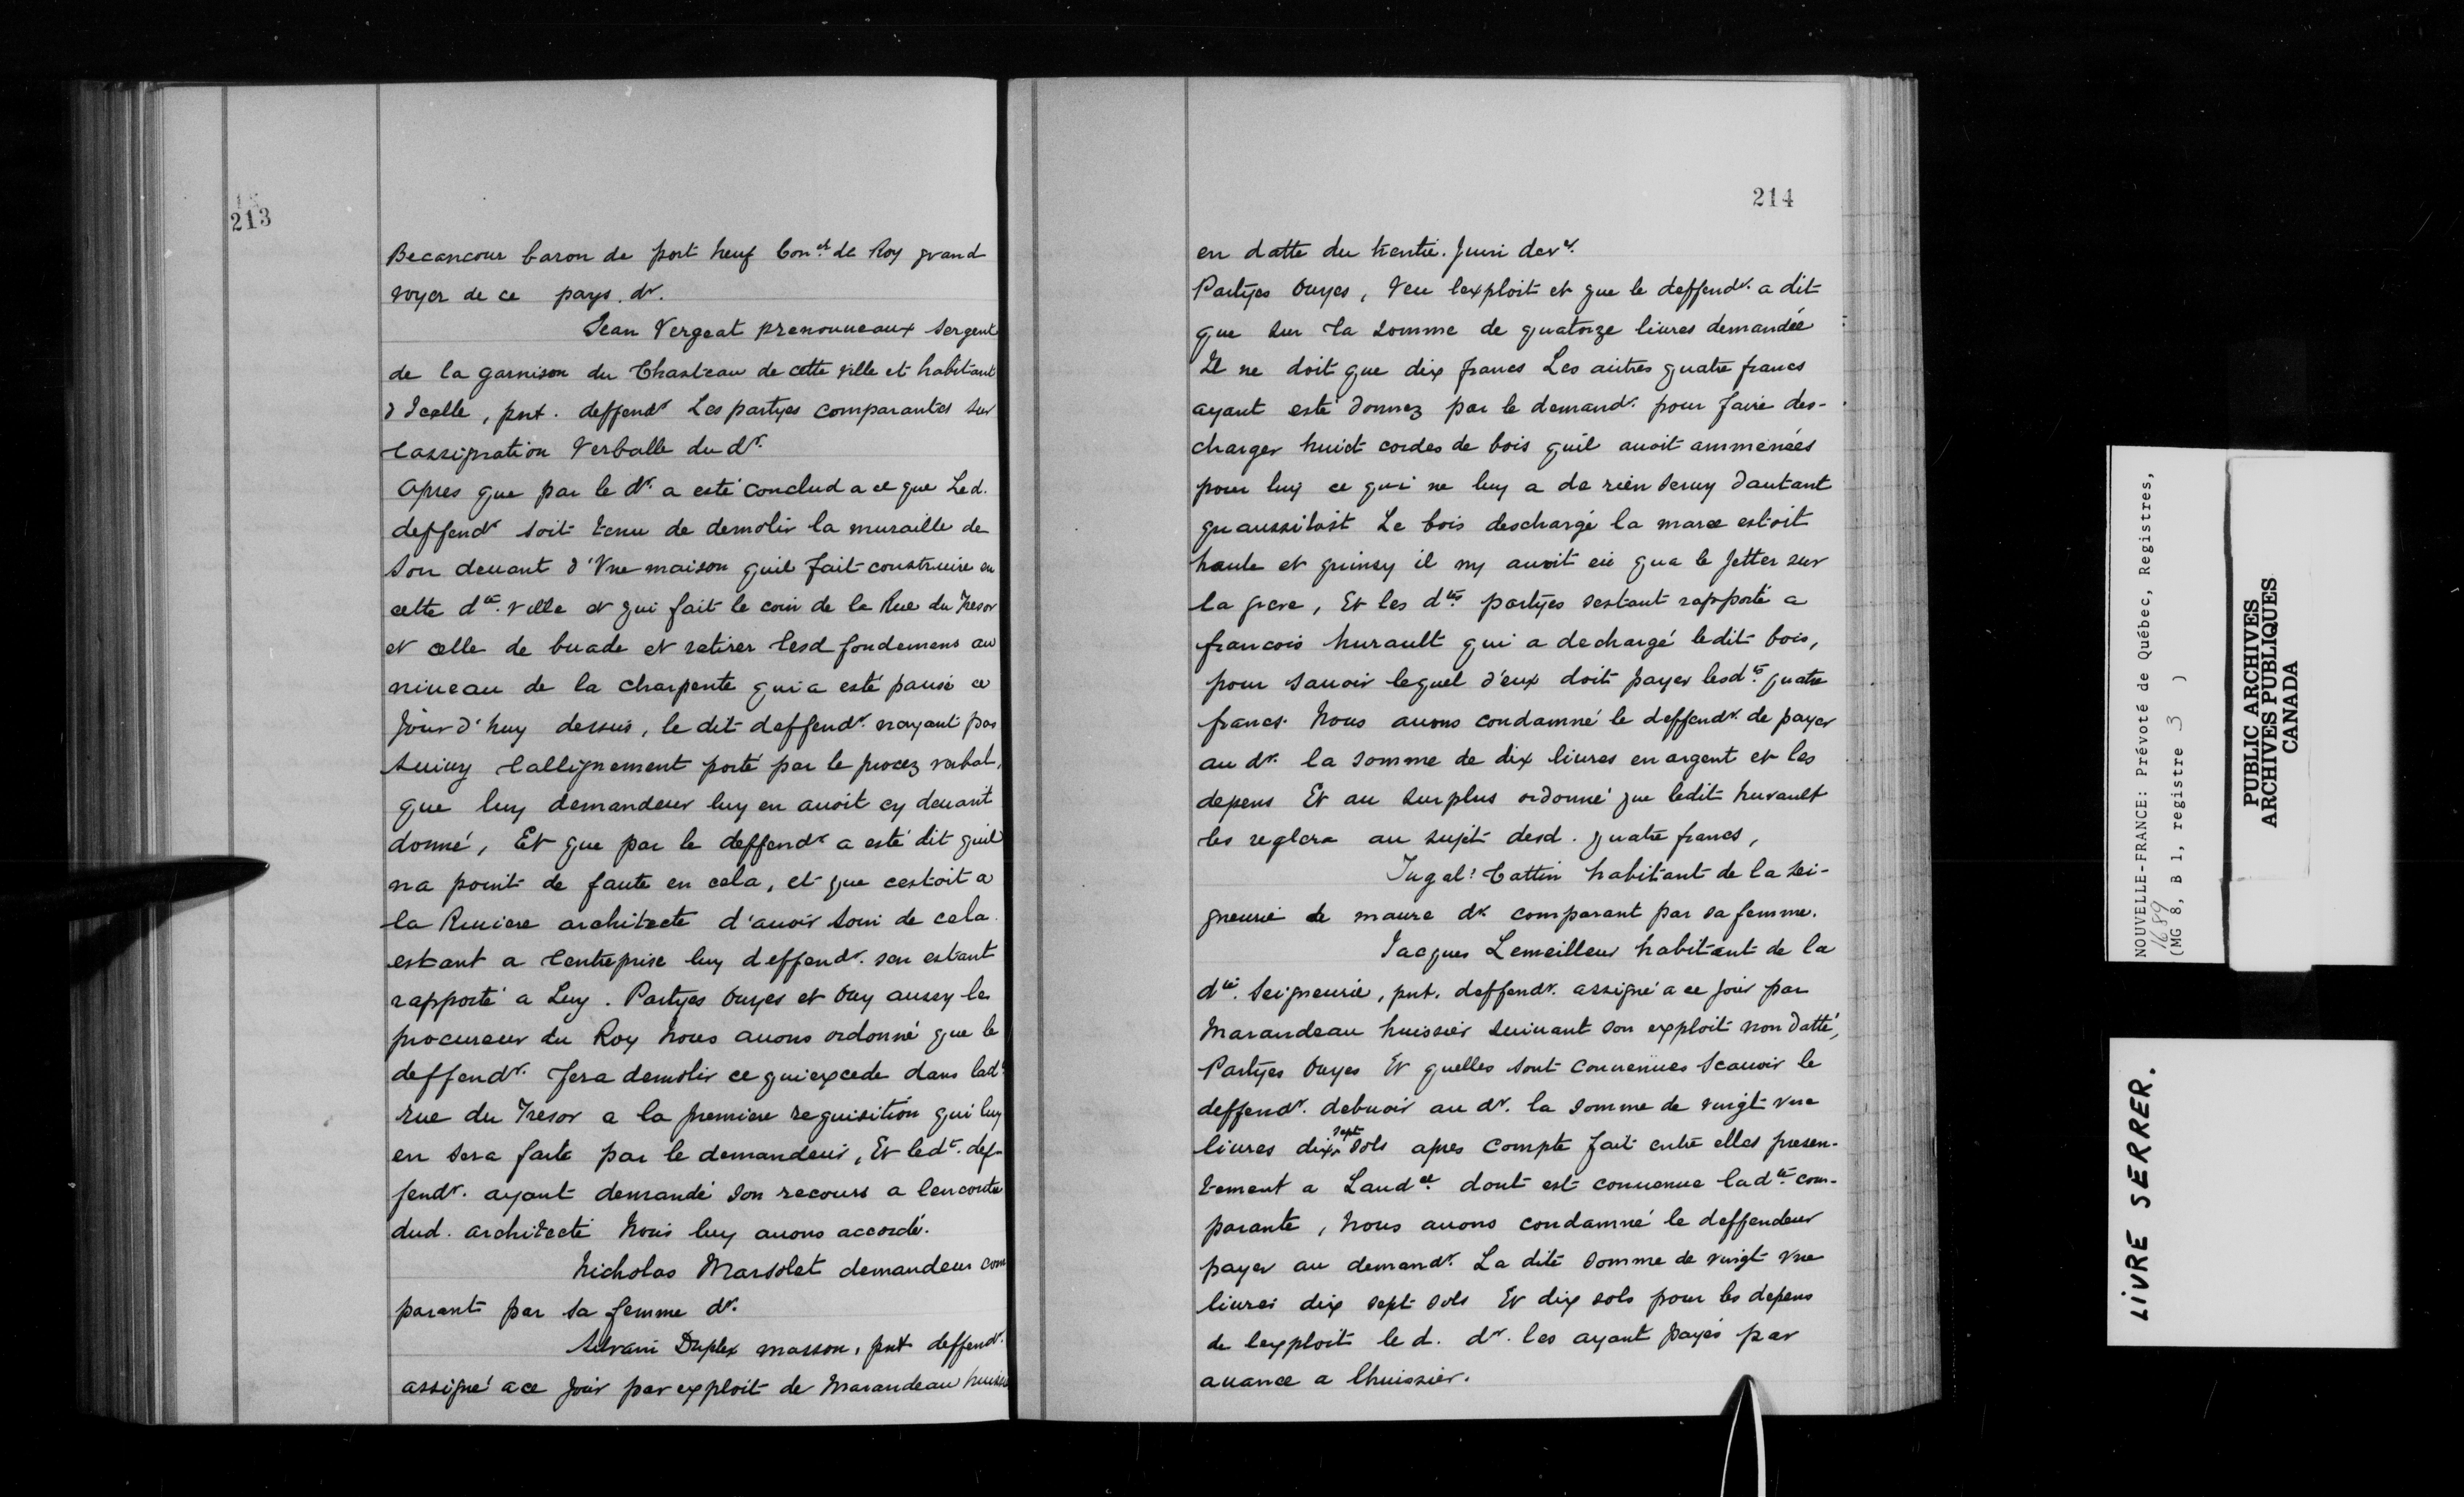 213
Becancour baron de port neuf Con.er de Roy grand
voyer de ce pays. dr.
Jean Vergeat prenouueaux Sergent
de la garnison du Chasteau de cette ville et habitant
d'Icelle, pnt. deffendr Les partyes comparantes sur
lassignation Verballe du dr.
Apres que par le dr. a esté conclud a ce que Led.
deffendr soit tenu de demolir la muraille de
Son deuant d'Vne maison quil fait construire en
cette dte. ville et qui fait le coin de la Rue du Tresor
et celle de buade et retirer lesd fondemens au
niueau de la charpente quia esté pausé ce
Jour d'huy dessus, le dit deffendr. nayant pas
Suiuy lallignement porté par le procez verbal,
que luy demandeur luy en auoit cy deuant
donné, Et que par le deffendr a esté dit quil
na point de faute en cela, et que cestoit a
la Riuiere architecte d'auoir soin de cela
estant a lentreprise luy deffendr. sen estant
rapporté a Luy. Partyes Ouyes et Ouy aussy le
procureur du Roy Nous auons ordonné que le
deffendr. fera demolir ce qui excede dans lad.
rue du Tresor a la premiere requisition qui luy
en sera faite par le demandeur, Et ledt. def-
fendr. ayant demandé son recours a lencontre
dud. architecte Nous luy auons accordé.
Nicholas Marsolet demandeur com
parant par sa femme dr.
Silvain Duplex masson, pnt deffendr.
assigné a ce Jour par exploit de Marandeau huissi
214
en datte du trentie. Juin der.
Partyes Ouyes, Veu lexploit et que le deffendr. a dit
que sur la somme de quatorze liures demandée
Il ne doit que dix francs Les autres quatre francs
ayant esté donnez par le demandr. pour faire des-
charger huict cordes de bois quil auoit ammenées
pour luy ce qui ne luy a de rien seruy dautant
quaussitost Le bois deschargé la maree estoit
haute et quinsy il ny auoit eü qua le Jetter sur
la greve, Et les dtes partyes sestant rapporté a
francois hurault qui a dechargé ledit bois,
pour sauoir lequel d'eux doit payer lesdts. quatre
francs. Nous auons condamné le deffendr. de payer
au dr. la somme de dix liures en argent et les
depens Et au surplus ordonné que ledit hurault
les reglera au sujet desd. quatre francs,
Vital Cattin habitant de la sei-
gneurie de maure dr. comparant par sa femme.
Jacques Lemeilleur habitant de la
dte. Seigneurie, pnt. deffendr. assigné a ce jour par
Marandeau huissier suiuant son exploit non datté,
Partyes Ouyes Et quelles sont conuenues Scauoir le
deffendr. debuoir au dr. la somme de vingt vne
liures dix sept sols apres compte fait entre elles presen-
tement a Laud.ce dont est conuenue ladte. com-
parante, Nous auons condamné le deffendeur
payer au demandr. La dite somme de vingt vne
liures dix sept sols Et dix sols pour les depens
de lexploit le d. dr. les ayant payés par
auance a lhuissier.
NOUVELLE-FRANCE: Prévoté de Québec, Registres,
1689
(MG 8, B 1, registre 3 )
PUBLIC ARCHIVES
ARCHIVES PUBLIQUES
CANADA
LIVRE SERRER.